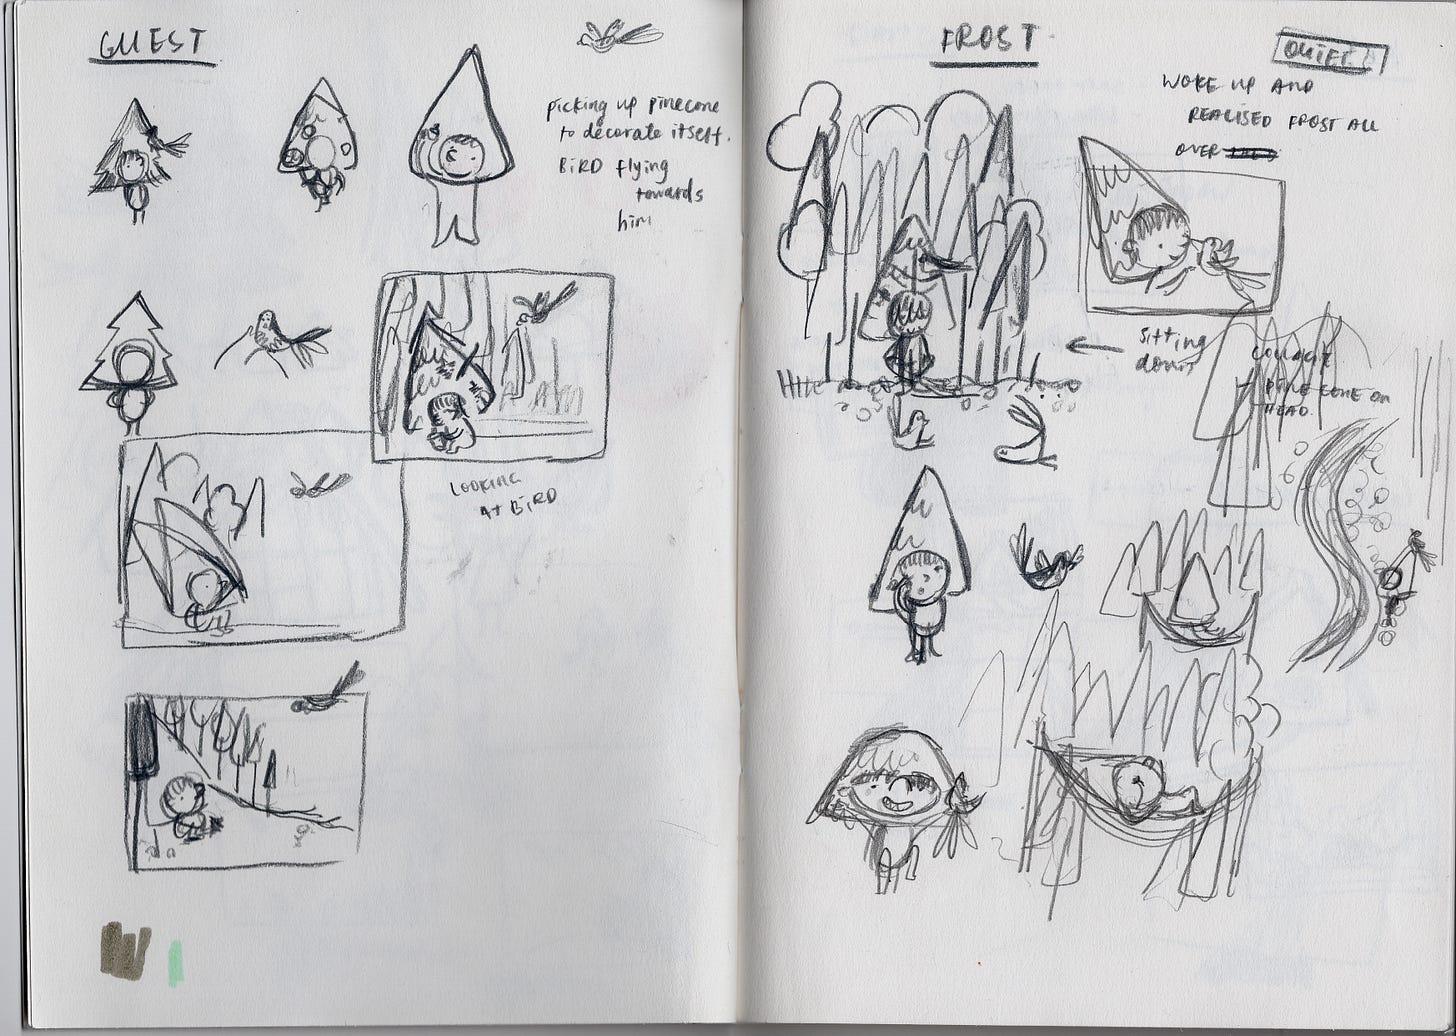 GUEST
picking up pinecone
to decorate itself.
BIRD flying
towards
him
LOOKING
AT BIRD
FROST
QUIET
WOKE UP AND
REALISED FROST ALL
OVER
sitting
down
PINE CONE ON
HEAD.